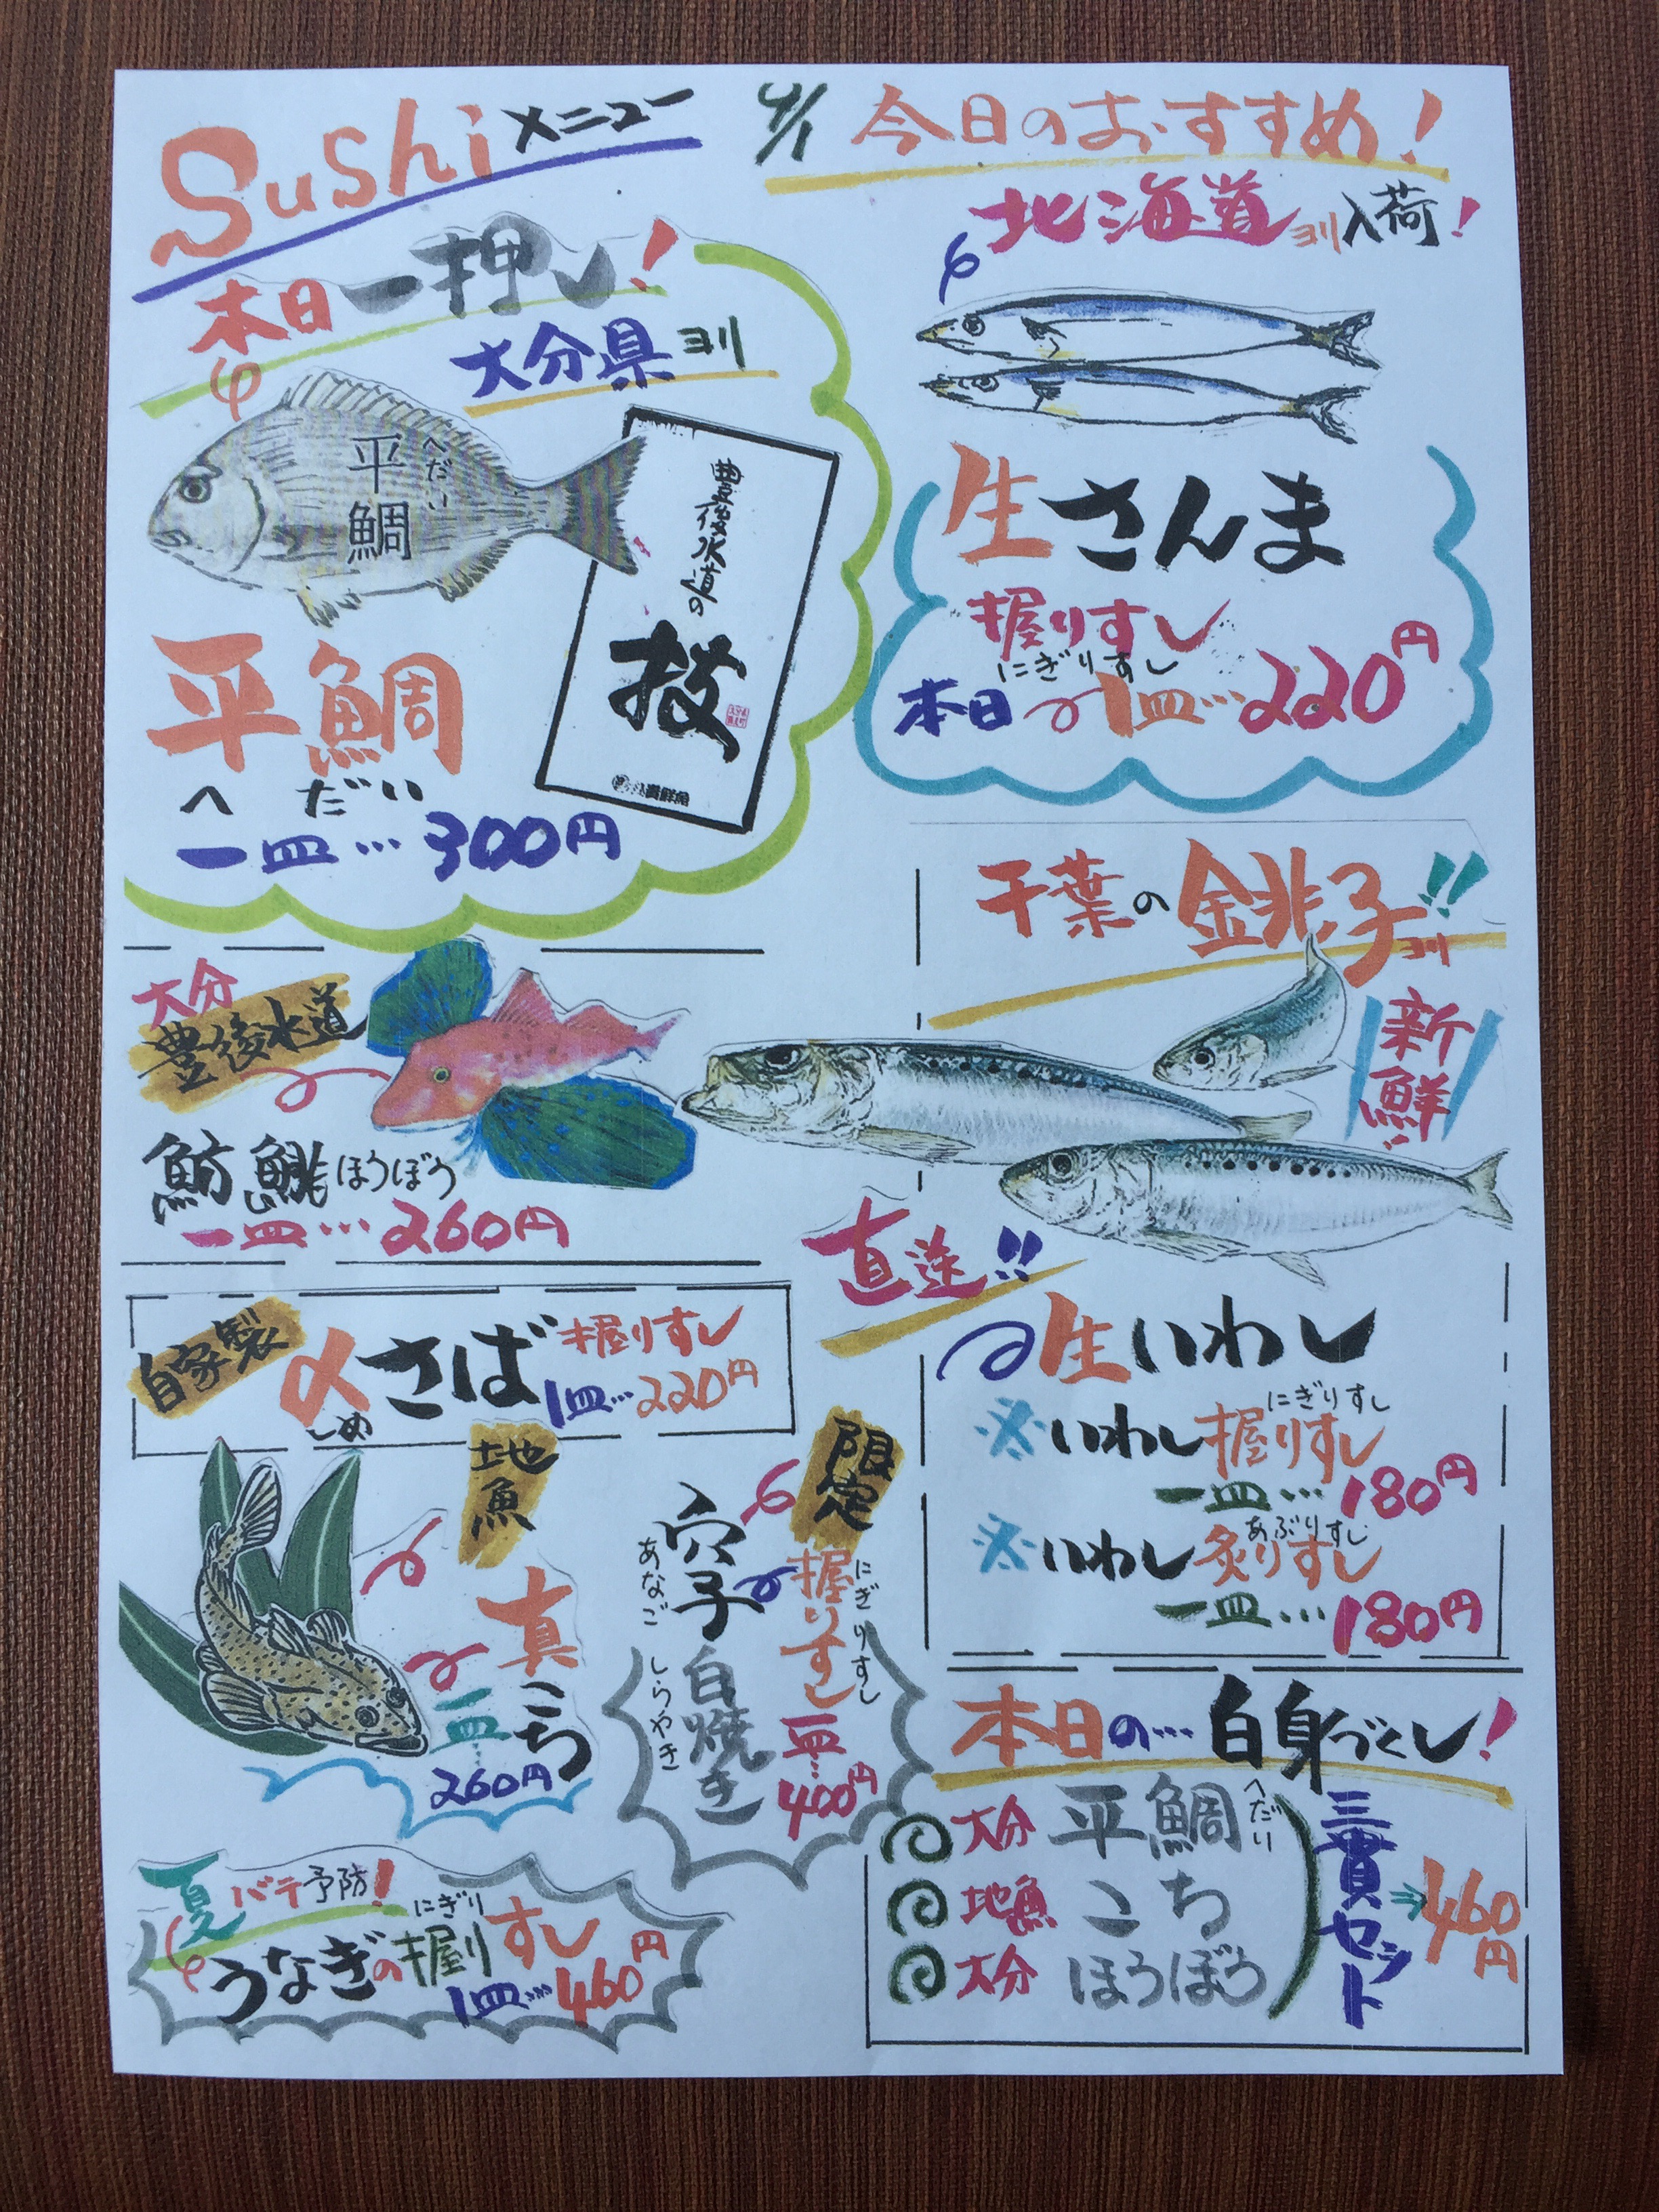 Sushiメニュー
本日一押し!
大分県ヨリ
平鯛
へだい
豊後水道の
技
貴鮮魚
平鯛
へだい
一皿…300円
今日のおすすめ!
北海道ヨリ入荷!
生さんま
握りすし
にぎりすし
本日1皿…220円
大分
豊後水道
魴鮄ほうぼう
一皿…260円
千葉の銚子ヨリ!!
新鮮!
直送!!
生いわし
にぎりすし
※いわし握りすし
一皿…180円
あぶりすし
※いわし炙りすし
一皿…180円
自家製
〆さば握りすし
しめ
1皿…220円
地魚
真こち
一皿…260円
限定
穴子
あなご
白焼き
しらやき
握りすし
にぎりすし
一皿…400円
夏バテ予防!
にぎり
うなぎの握りすし
1皿…460円
本日の…白身づくし!
大分 平鯛 へだい
地魚 こち
大分 ほうぼう
三貫セット⇒460円